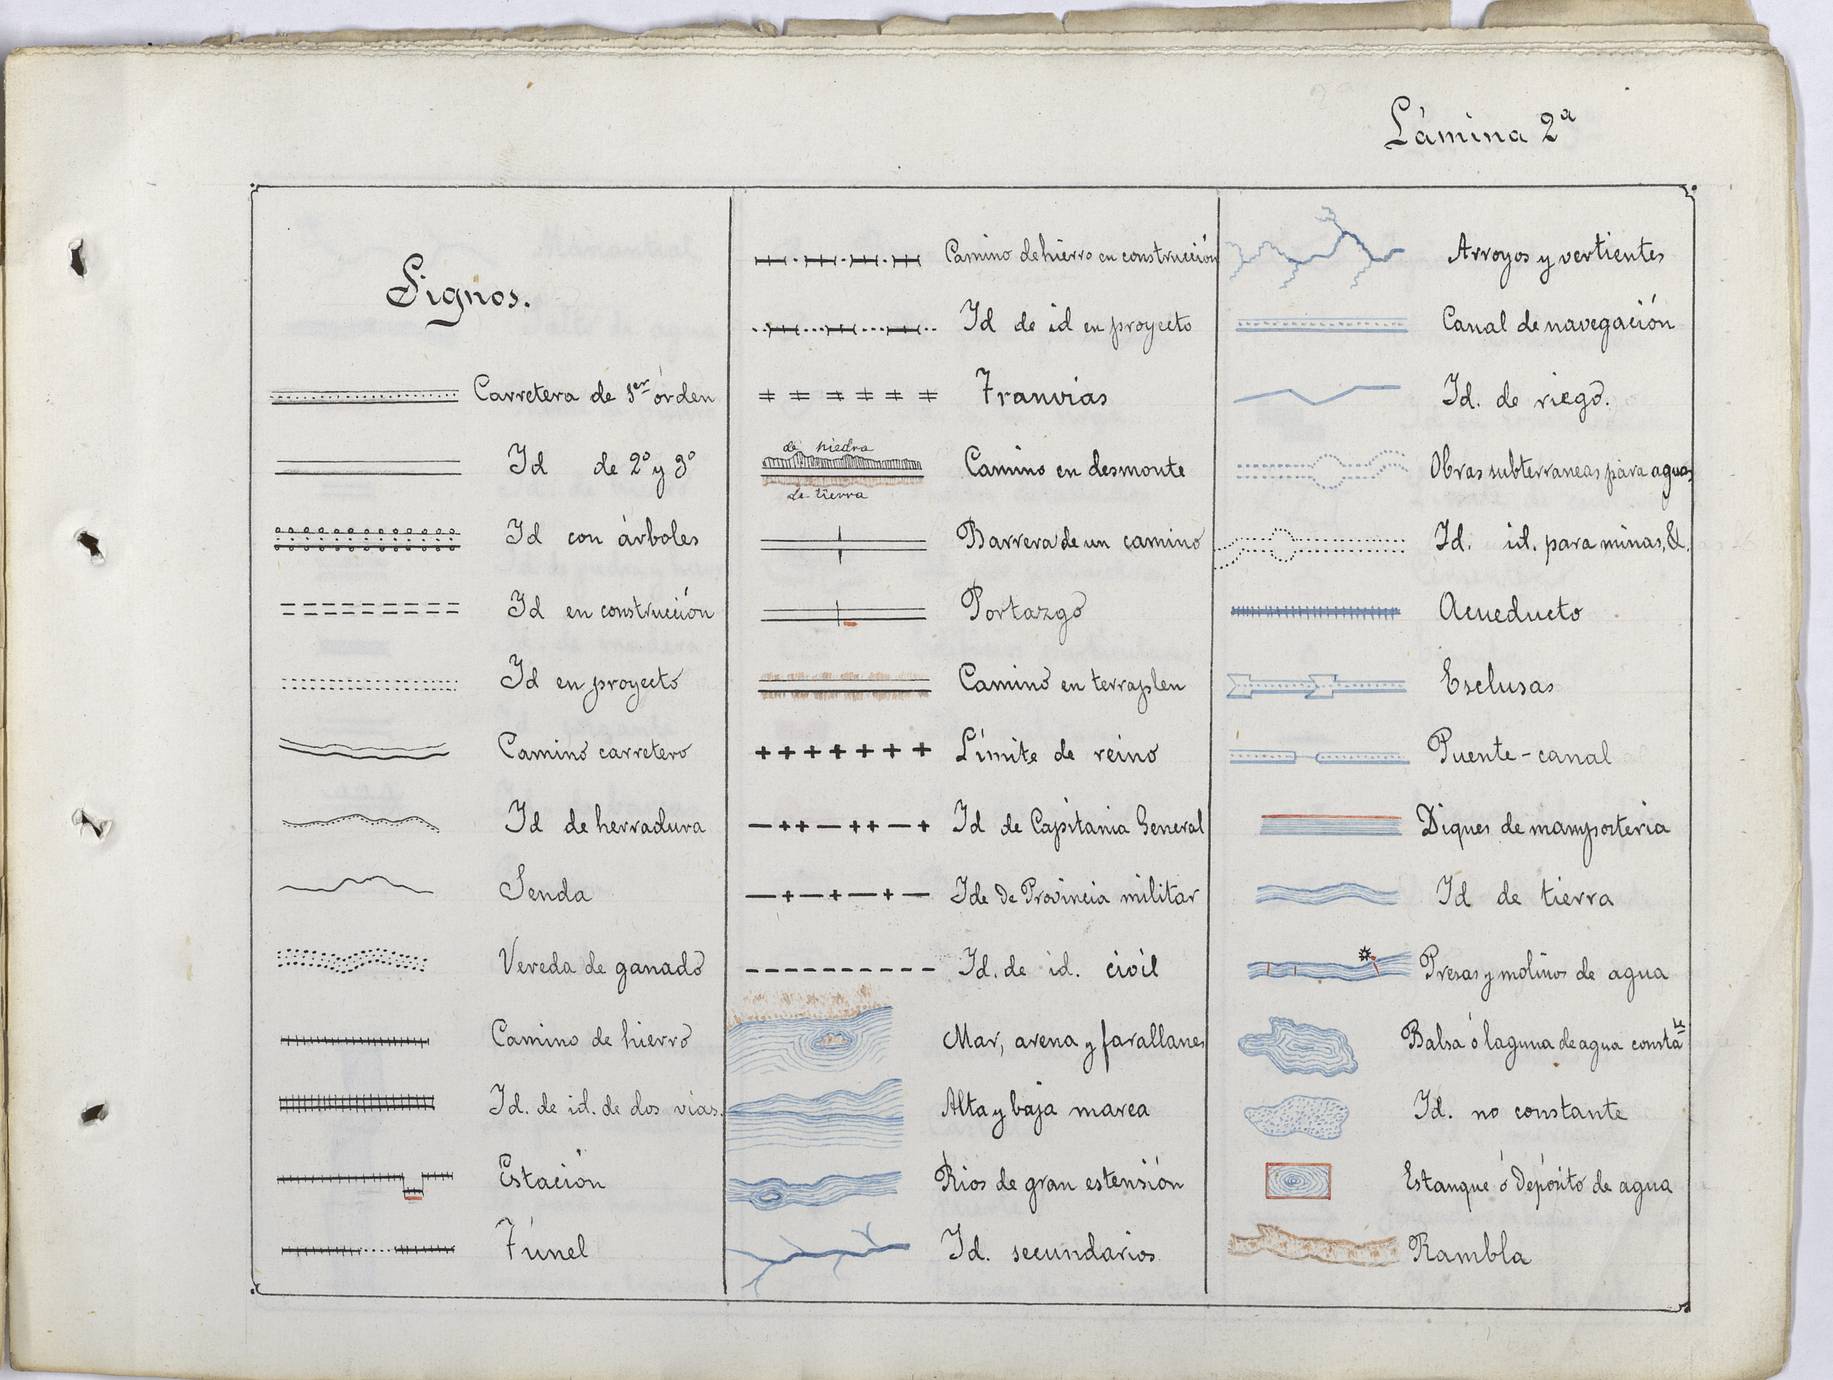 Lámina 2ª
Signos.
Carretera de 1er órden
Id de 2º y 3º
Id con árboles
Id en construcción
Id en proyecto
Camino carretero
Id de herradura
Senda
Vereda de ganado
Camino de hierro
Id. de id. de dos vias.
Estación
Túnel
Camino de hierro en construcción
Id de id en proyecto
Tranvias
de piedra
Camino en desmonte
de tierra
Barrera de un camino
Portazgo
Camino en terraplen
Límite de reino
Id de Capitania General
Id de Provincia militar
Id. de id. civil
Mar, arena y farallanes
Alta y baja marea
Rios de gran estensión
Id. secundarios
Arroyos y vertientes
Canal de navegación
Id. de riego.
Obras subterraneas para aguas
Id. id. para minas, &.
Acueducto
Esclusas
Puente-canal
Diques de mamposteria
Id de tierra
Presas y molinos de agua
Balsa ó laguna de agua constate
Id. no constante
Estanque ó Depósito de agua
Rambla